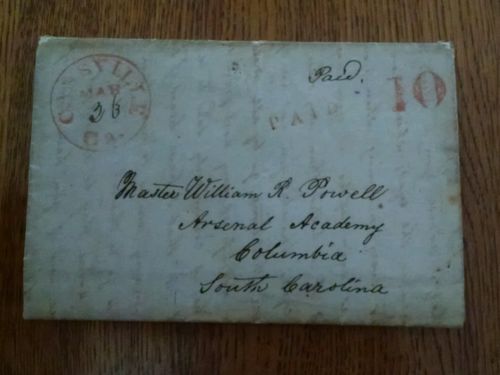 MAR
26
GA.
Paid.
PAID
10
Master William R. Powell
Arsenal Academy
Columbia
South Carolina